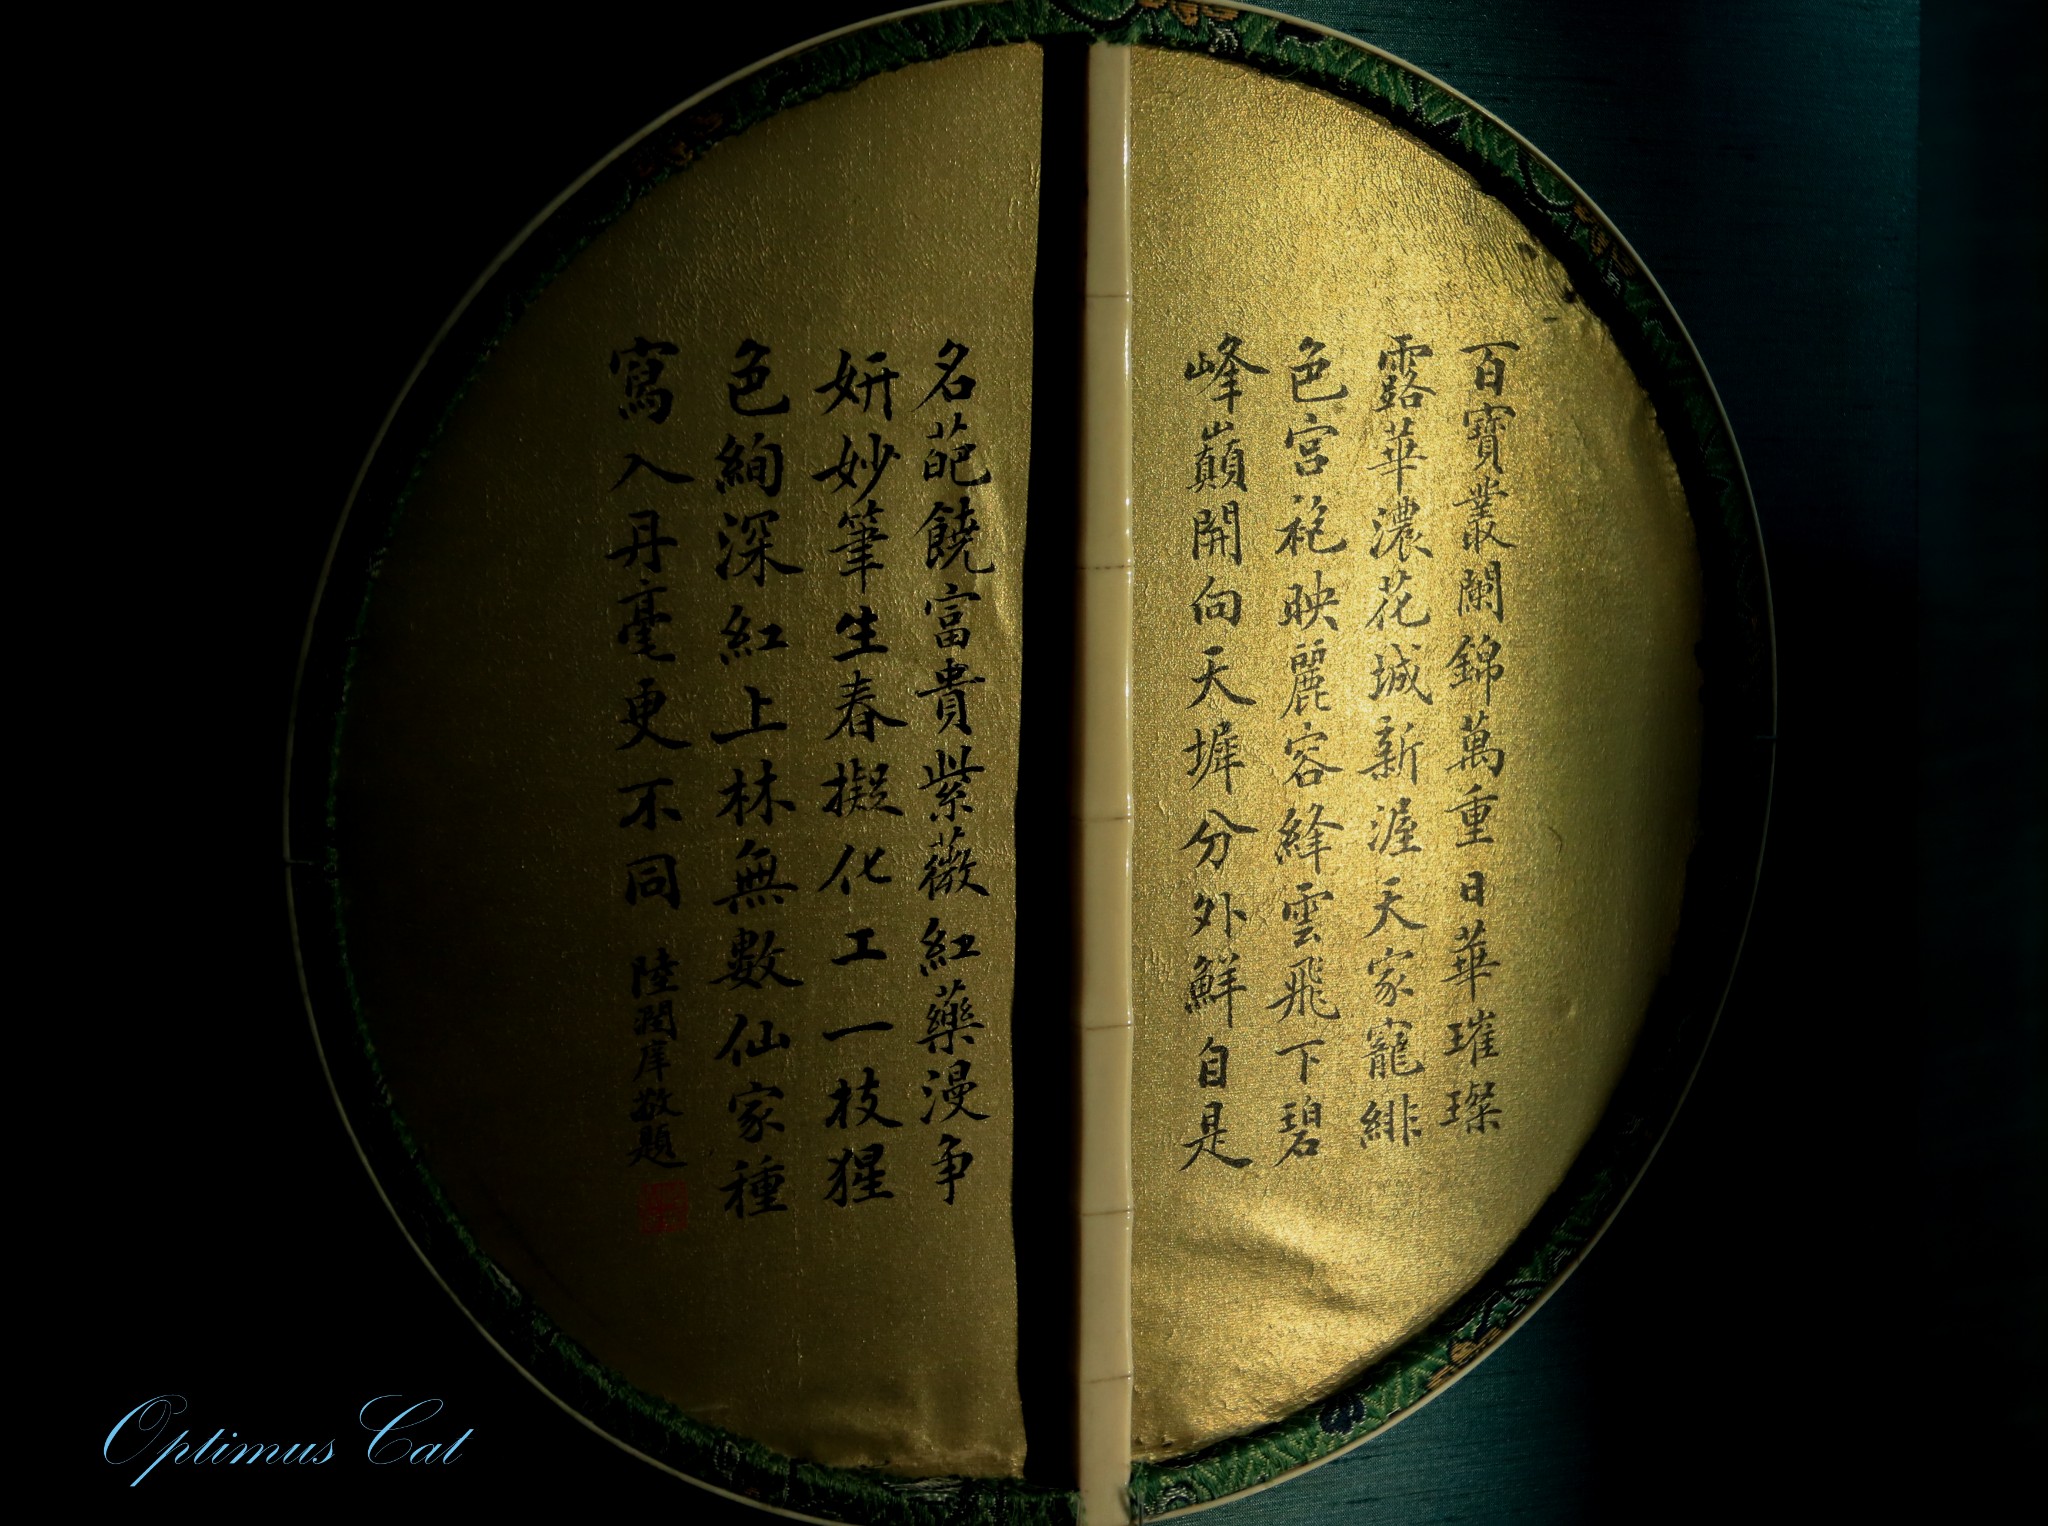 百寶叢闌錦萬重日華璀璨
露華濃花城新渥天家寵緋
色宮袍映麗容絳雲飛下碧
峰巔開向天墀分外鮮自是
名葩饒富貴紫薇紅藥漫争
妍妙筆生春擬化工一枝猩
色絢深紅上林無數仙家種
寫入丹毫更不同
陸潤庠敬題
Optimus Cat